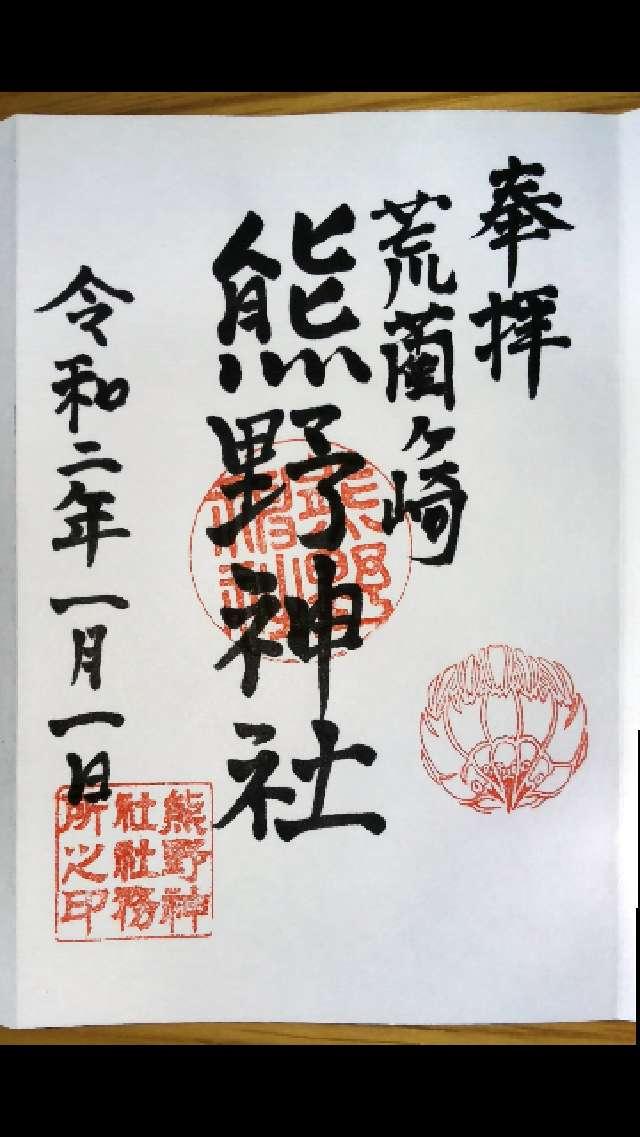 奉拝
荒藺ヶ崎
熊野神社
令和二年一月一日
熊野神
社社務
所之印